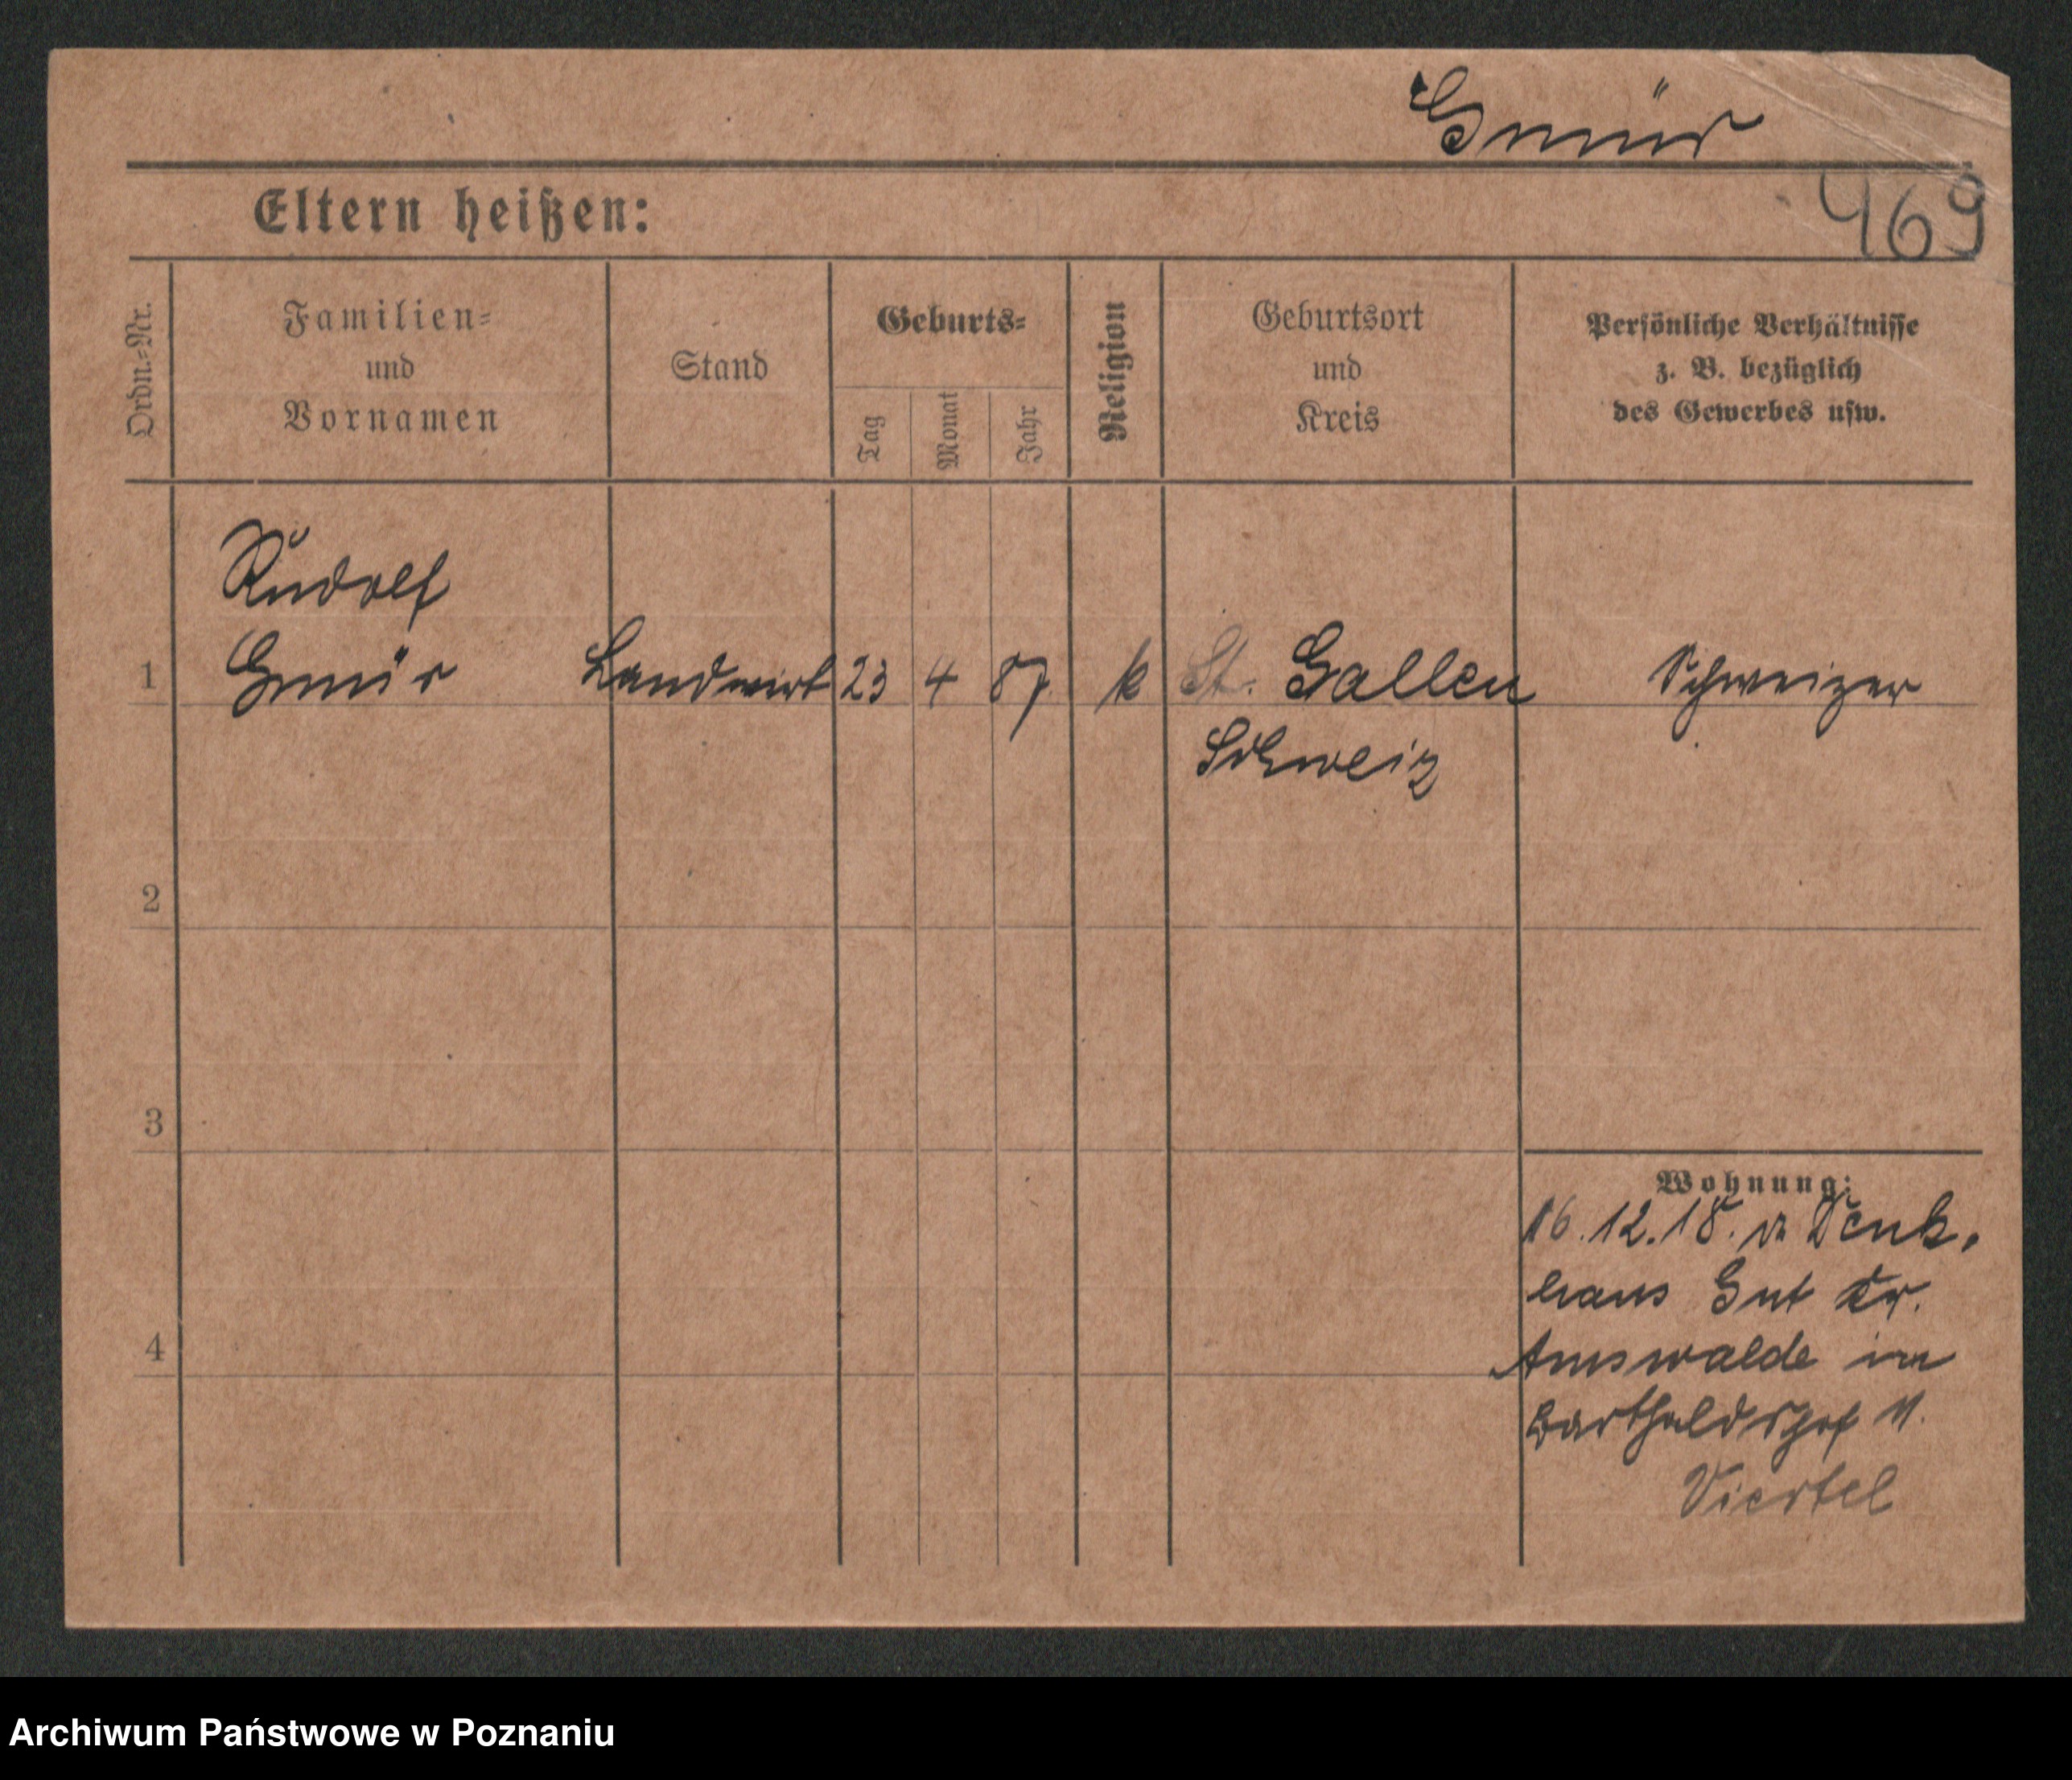 Gmür
Eltern heißen:
469
Ordn.-Nr.
Familien-
und
Vornamen
Stand
Geburts-
Tag
Monat
Jahr
Religion
Geburtsort
und
Kreis
Persönliche Verhältnisse
z. B. bezüglich
des Gewerbes usw.
Rudolf
1 Gmür Landwirt 23 4 87 k St. Gallen Schweizer
Schweiz
2
3
4
Wohnung:
16.12.18. v. Denk-
haus Gut Kr.
Arnswalde in
Bartholdshof
Viertel
Archiwum Państwowe w Poznaniu